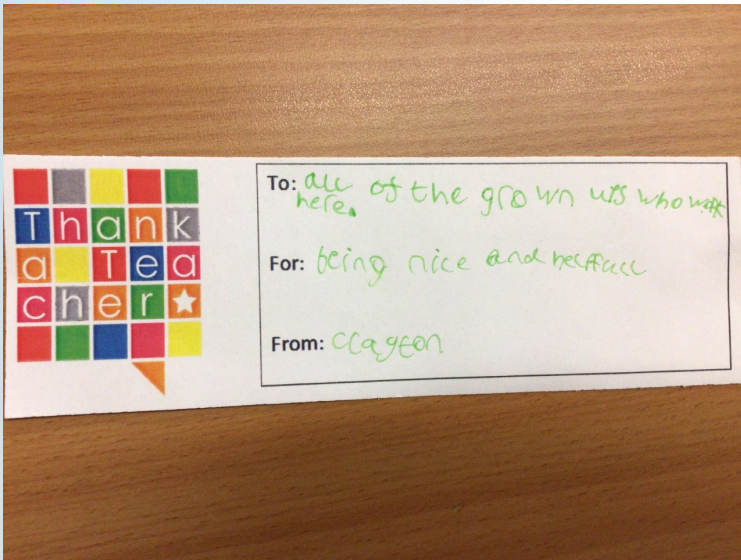 Thank
a Tea
cher
To: all of the grown ups who work
here.
For: being nice and helpfull
From: Clayton